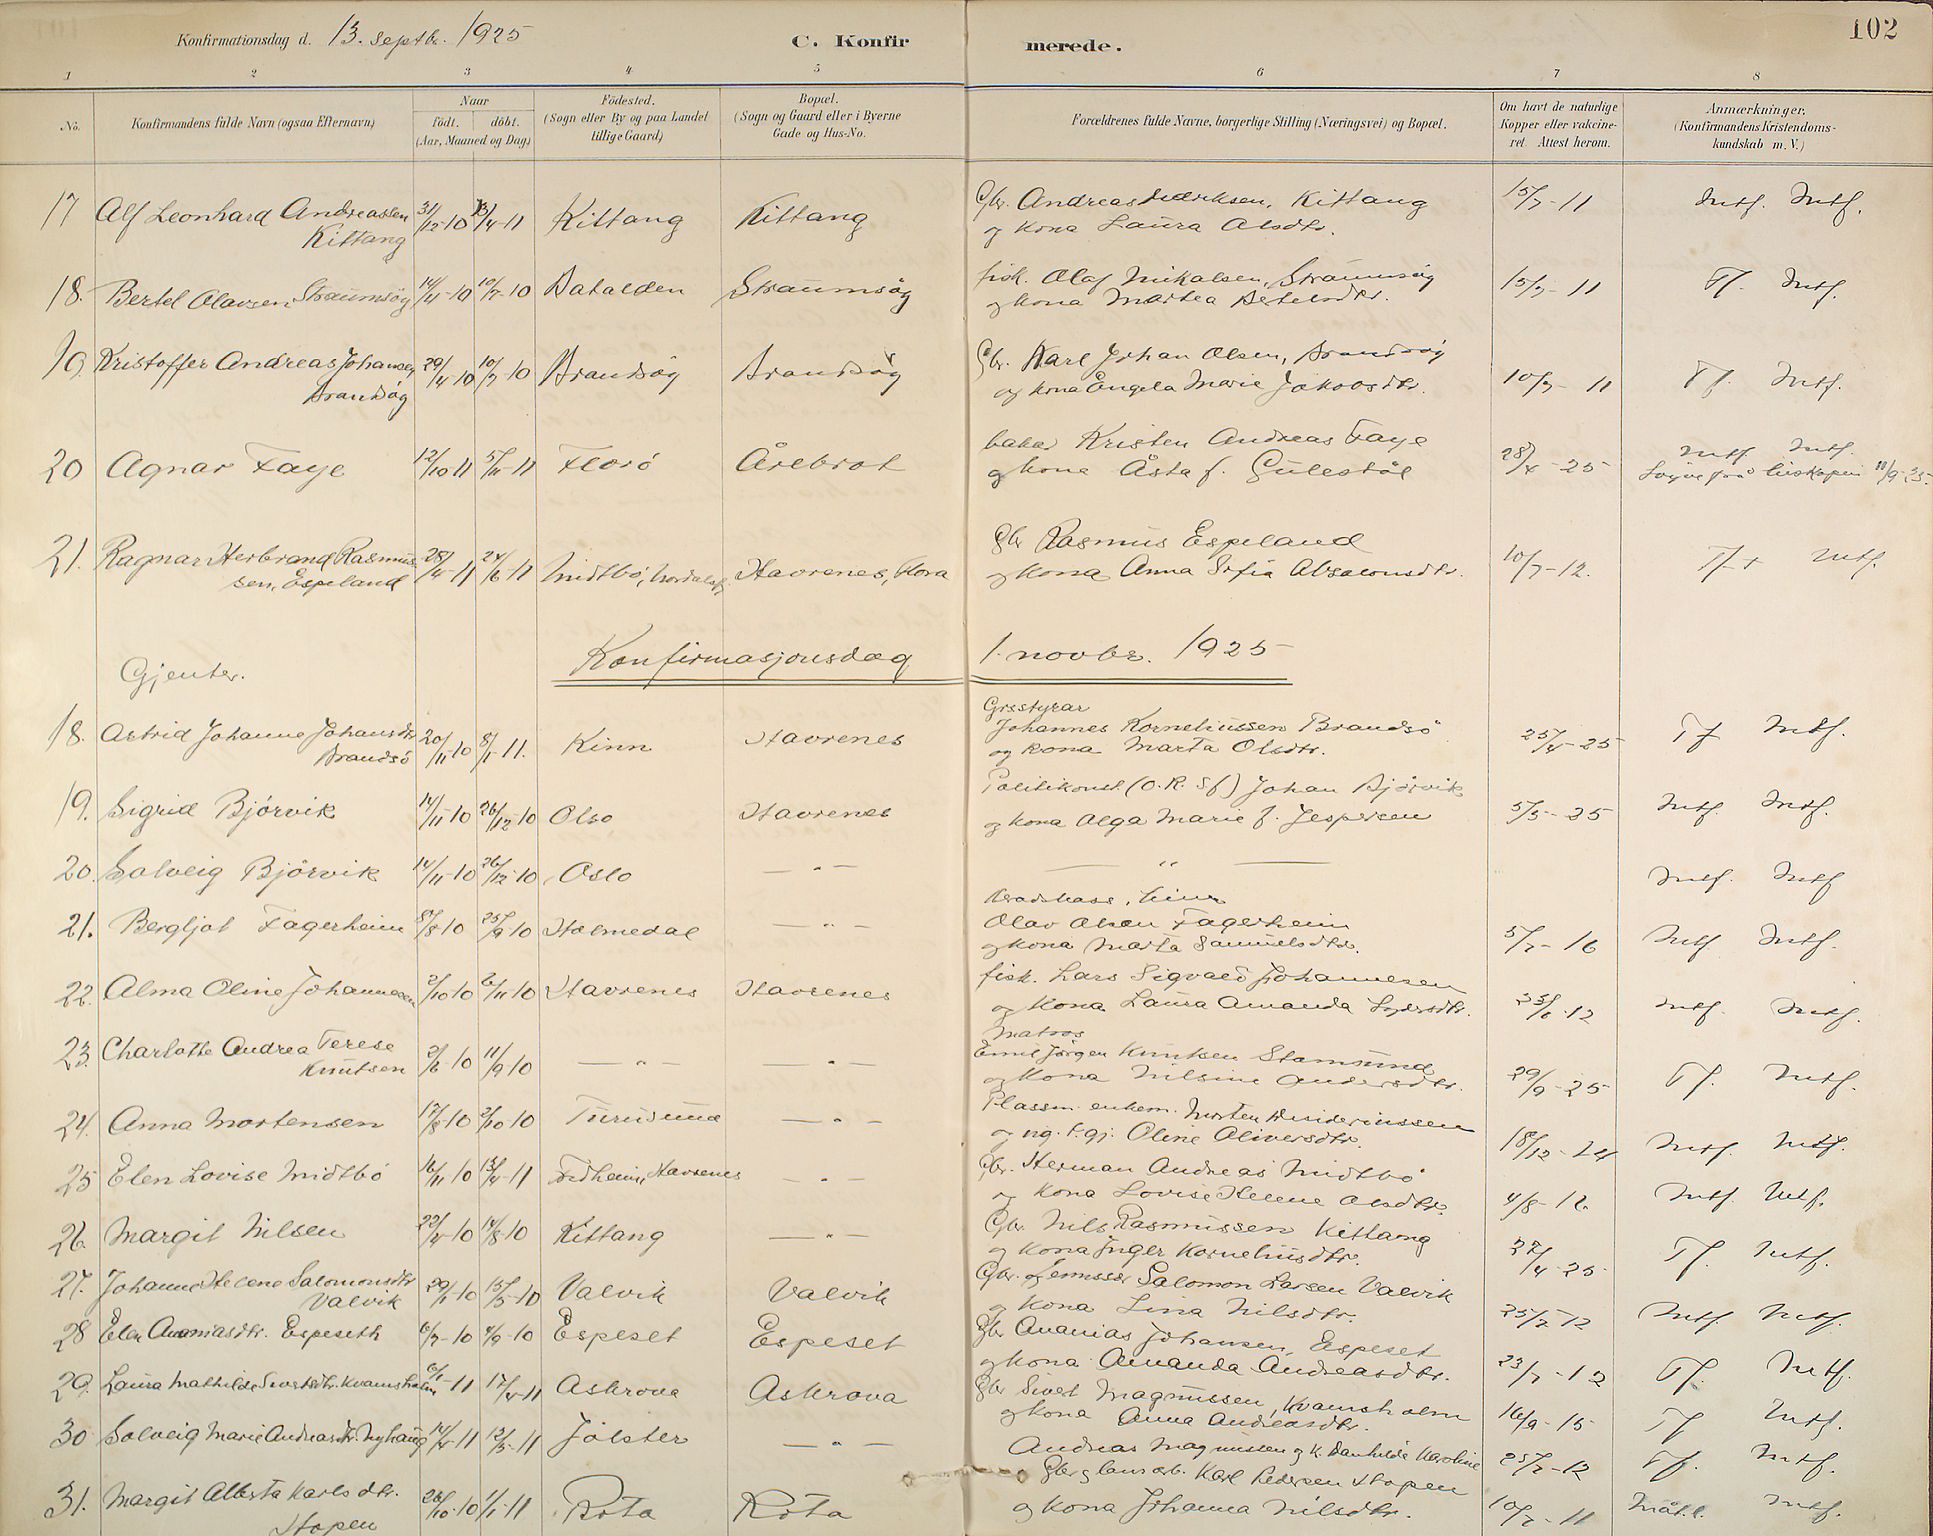 Konfirmationsdag d. 13. septbr. 1925
C. Konfirmerede.
102
1 2 3 4 5 6 7 8
No.
Konfirmandens fulde Navn (ogsaa Efternavn)
Naar
födt. döbt.
(Aar, Maaned og Dag)
Födested.
(Sogn eller By og paa Landet
tillige Gaard)
Bopæl.
(Sogn og Gaard eller i Byerne
Gade og Hus-No.
Forældrenes fulde Navne, borgerlige Stilling (Næringsvei) og Bopæl.
Om havt de naturlige
Kopper eller vakcine-
ret. Attest herom.
Anmærkninger.
(Konfirmandens Kristendoms-
kundskab m. V.)
17 Alf Leonhard Andreassen 31/12-10 13/4-11 Kittang Kittang Gbr. Andreas Kittang 15/7-11 Mtf. Mtf.
Kittang og kona Laura Olsdtr.
18. Bertel Olavsen Straumsøy 14/4-10 10/7-10 Batalden Straumsøy fisk. Olaf Mikalsen, Straumsøy 15/7-11 Tf. Mtf.
og kona Martea Bertelsdtr.
19. Kristoffer Andreas Johansen 29/4-10 10/7-10 Brandsøy Brandsøy Gbr. Karl Johan Olsen, Brandsøy
Brandsøy og kona Engela Marie Jakobsdtr. 10/7-11 Tf. Mtf.
20 Agnar Faye 12/10-11 5/11-11 Florö Årebrot bakar Kristen Andreas Faye 28/4-25 Mtf. Mtf.
og kona Åsta f. Gulestøl Löyve frå biskopen 11/9-25.
21. Ragnar Herbrand Rasmus- 28/4-11 24/6-11 Midtbö, Nordalsfj. Havrenes, Flora Gbr Rasmus Espeland 10/7-12. Tf+ Mtf.
sen, Espeland og kona Anna Sofia Absalonsdtr.
Konfirmasjonsdag 1. novbr. 1925
Gjenter.
18. Astrid Johanne Johansdtr 20/11-10 8/1-11. Kinn Havrenes Grsstyrar
Brandsö Johannes Korneliussen Brandsö 25/4-25 Tf Mtf.
og kona Marta Olsdtr.
19. Sigrid Bjørvik 14/11-10 26/12-10 Olso Havrenes Politikonst. (O.R. Sf) Johan Bjørvik
og kona Olga Marie f. Jespersen 5/5-25 Mtf. Mtf.
20. Solveig Bjørvik 14/11-10 26/12-10 Oslo — " — — " — Mtf. Mtf
21. Bergljot Fagerheim 8/8-10 25/9-10 Holmedal — " — Heradskass. Kinn
Olav Olsen Fagerheim 5/7-16 Mtf Mtf.
og kona Marta Samuelsdtr.
22. Alma Oline Johannesen 2/10-10 6/11-10 Havrenes Havrenes fisk. Lars Sigvald Johannesen
og kona Laura Amanda Mtf. Mtf.
23. Charlotte Andrea Terese 2/6-10 11/9-10 — " — — " — Matros
Knutsen Emil Jörgen Knutsen Stamsund 29/9-25 Tf. Mtf.
og kona Nilsine Andersdtr.
24. Anna Mortensen 17/8-10 2/10-10 — " — Plassm. enkem. Morten Desideriussen
og ug. t.gj. Oline Oliversdtr. 18/12-24 Mtf. Mtf.
25 Elen Lovise Midtbö 16/11-10 13/4-11 Fredheim, Havrenes — " — Gbr. Herman Andreas Midtbö
og kona Lovise Helene Olsdtr. 4/8-12. Mtf. Mtf.
26. Margit Nilsen 22/4-10 14/8-10 Kittang — " — Gbr. Nils Rasmussen Kittang
og kona Inger Korneliusdtr. 27/4-25 Tf. Mtf.
27. Johanne Helene Salomonsdtr 29/1-10 15/5-10 Valvik Valvik Gbr. og Salomon Larsen Valvik
Valvik og kona Lina Nilsdtr. 25/7-12 Mtf. Mtf.
28 Elen Ananiasdtr. Espeseth 6/7-10 4/9-10 Espeset Espeset Gbr Ananias Johansen, Espeset
og kona Amanda Andreasdtr. 23/7-12 Tf. Mtf.
29. Laura Mathilde Sivertsdtr. Kvamsholm 6/1-11 17/4-11 Askrova Askrova Gbr Sivert Magnussen, Kvamsholm
og kona Anna Andreasdtr. 16/9-15 Tf Mtf.
30 Solveig Marie Andreasdtr. Nyhaug 14/4-11 13/5-11 Jölster — " — Andreas Magnussen og k. Danhilde Karoline 25/7-12 Tf. Mtf.
31. Margit Alberta Karlsdtr. 26/10-10 1/1-11 Rota Rota Gbr og Karl Pedersen Stopen
Stopen og kona Johanna Nilsdtr. 10/7-11 Mål.l. Mtf.